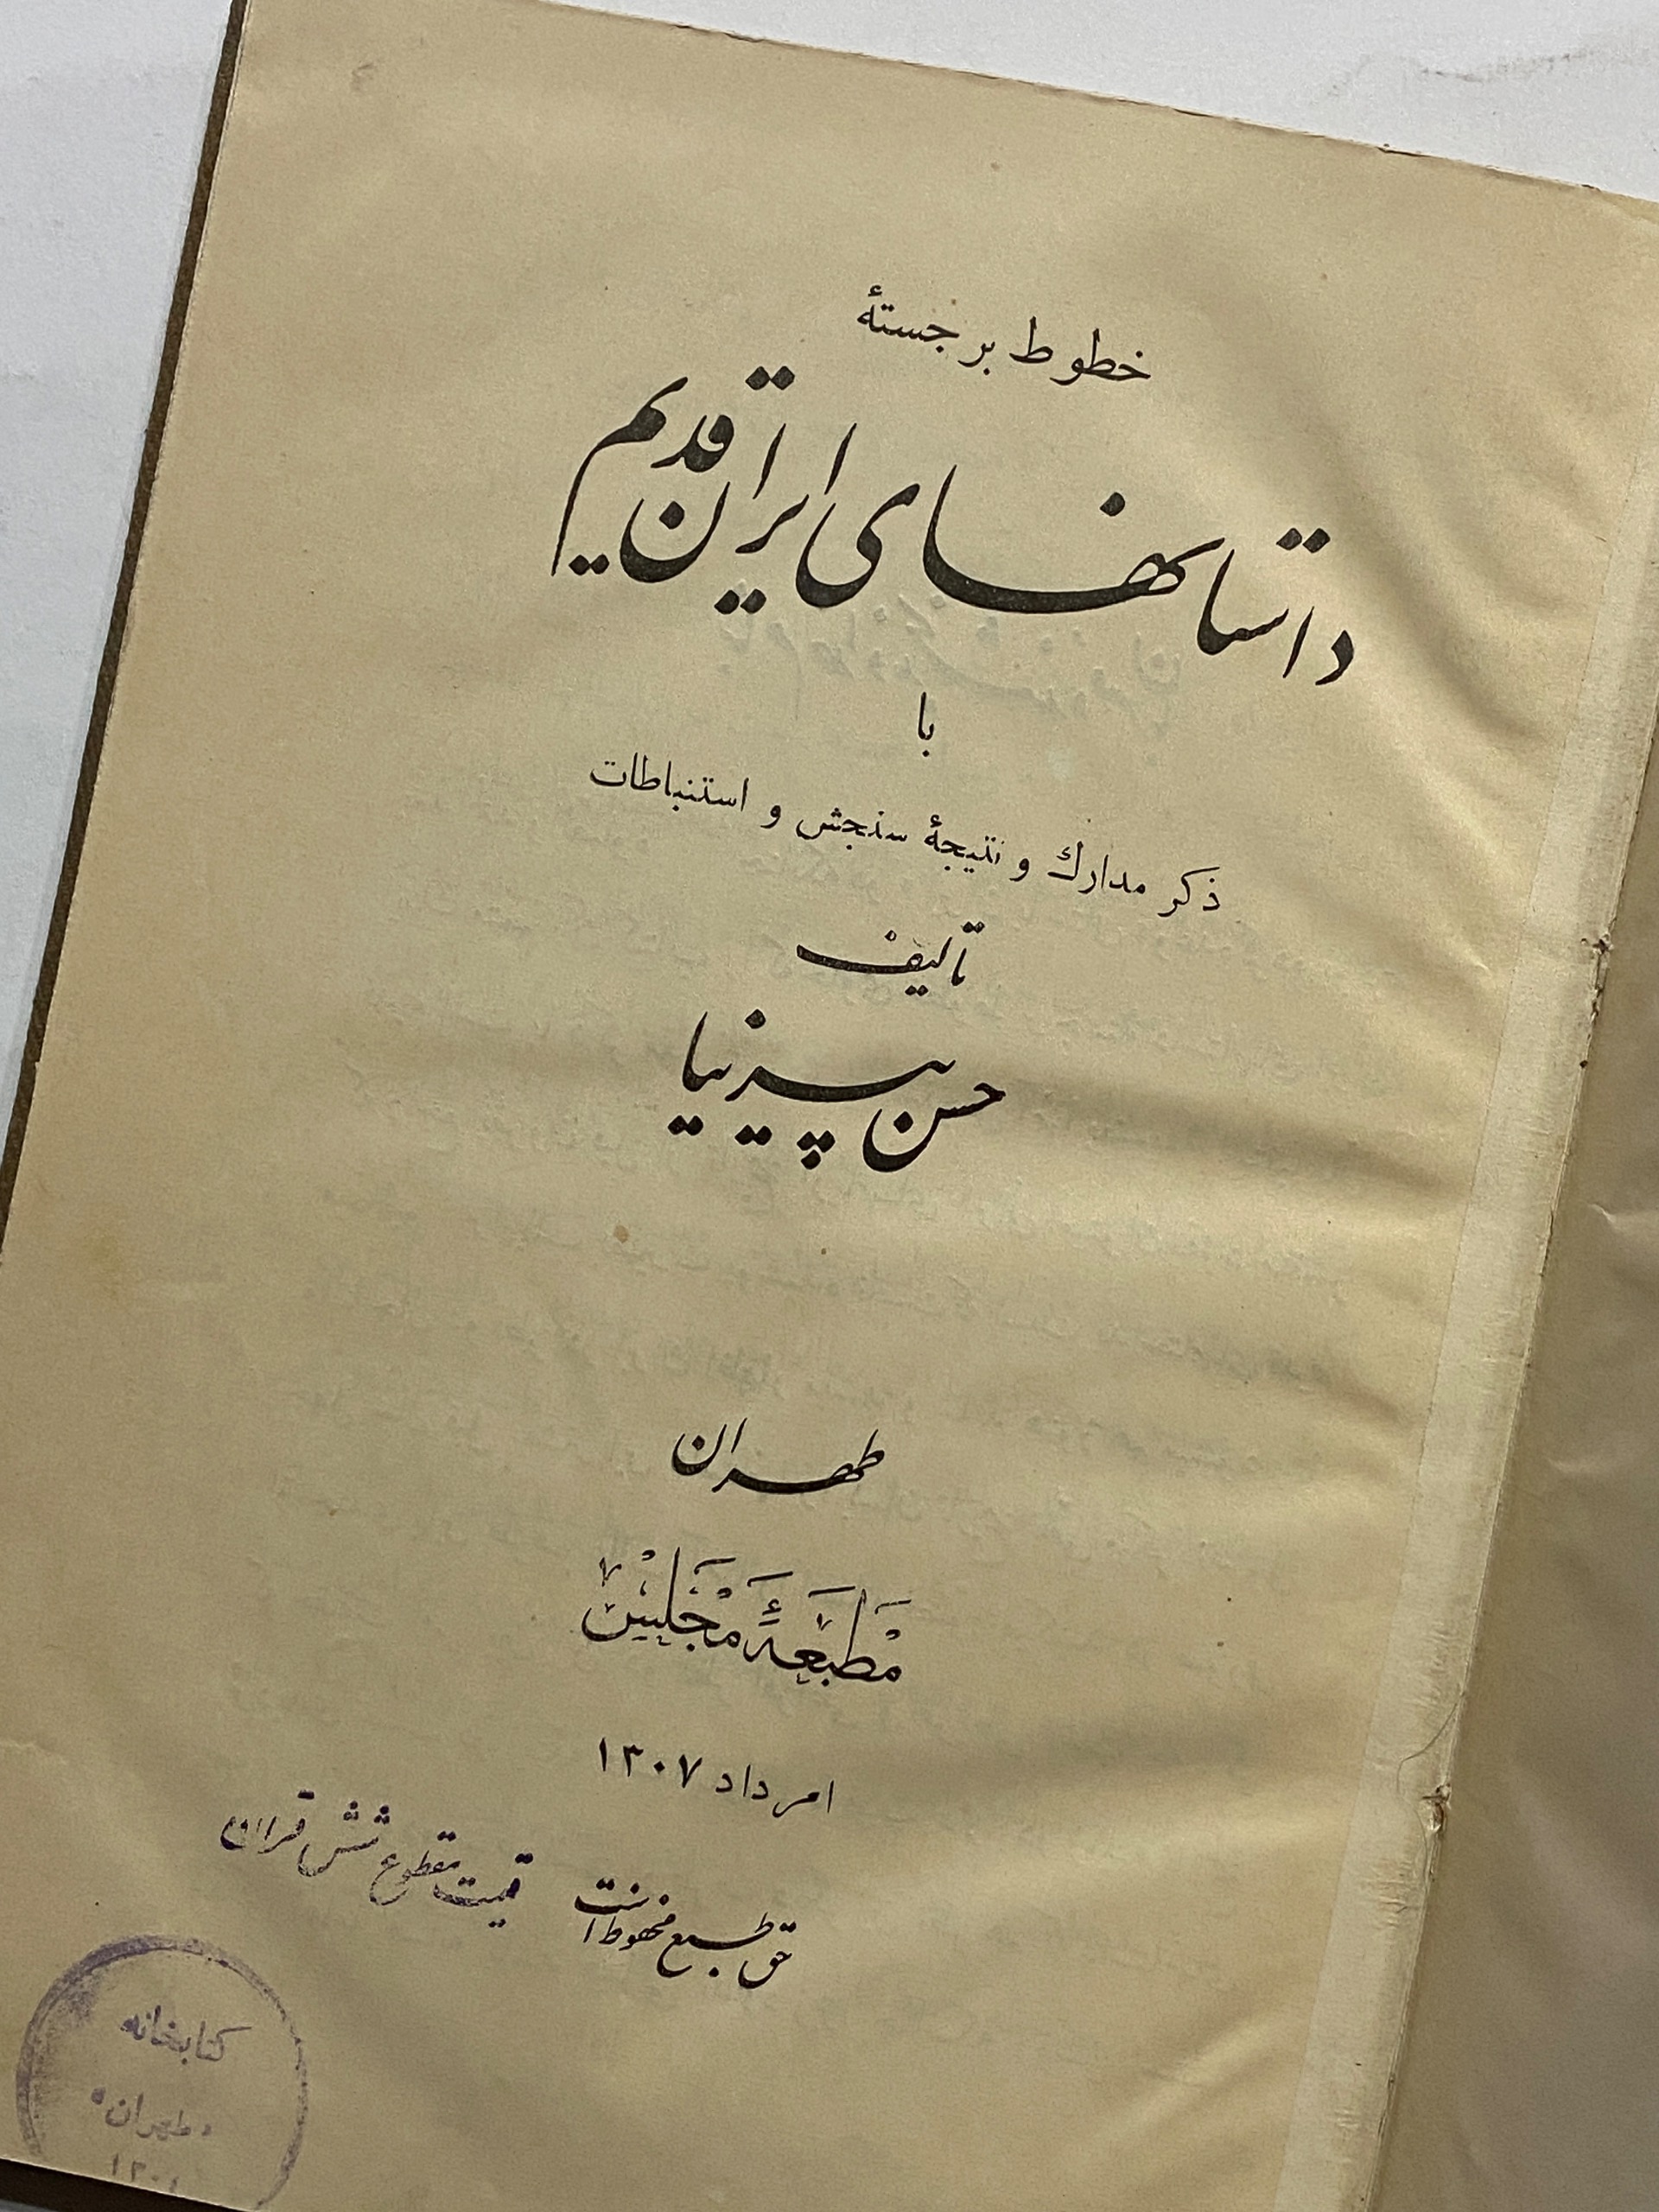 خطوط برجستهٔ
داستانهای ایران قدیم
با
ذکر مدارك و نتیجهٔ سنجش و استنباطات
تألیف
حسن پیرنیا
طهران
مَطْبَعَهٔ مَجْلِسْ
امرداد ۱۳۰۷
حق طبع محفوظ است
قیمت مقطوع شش قران
کتابخانه
طهران